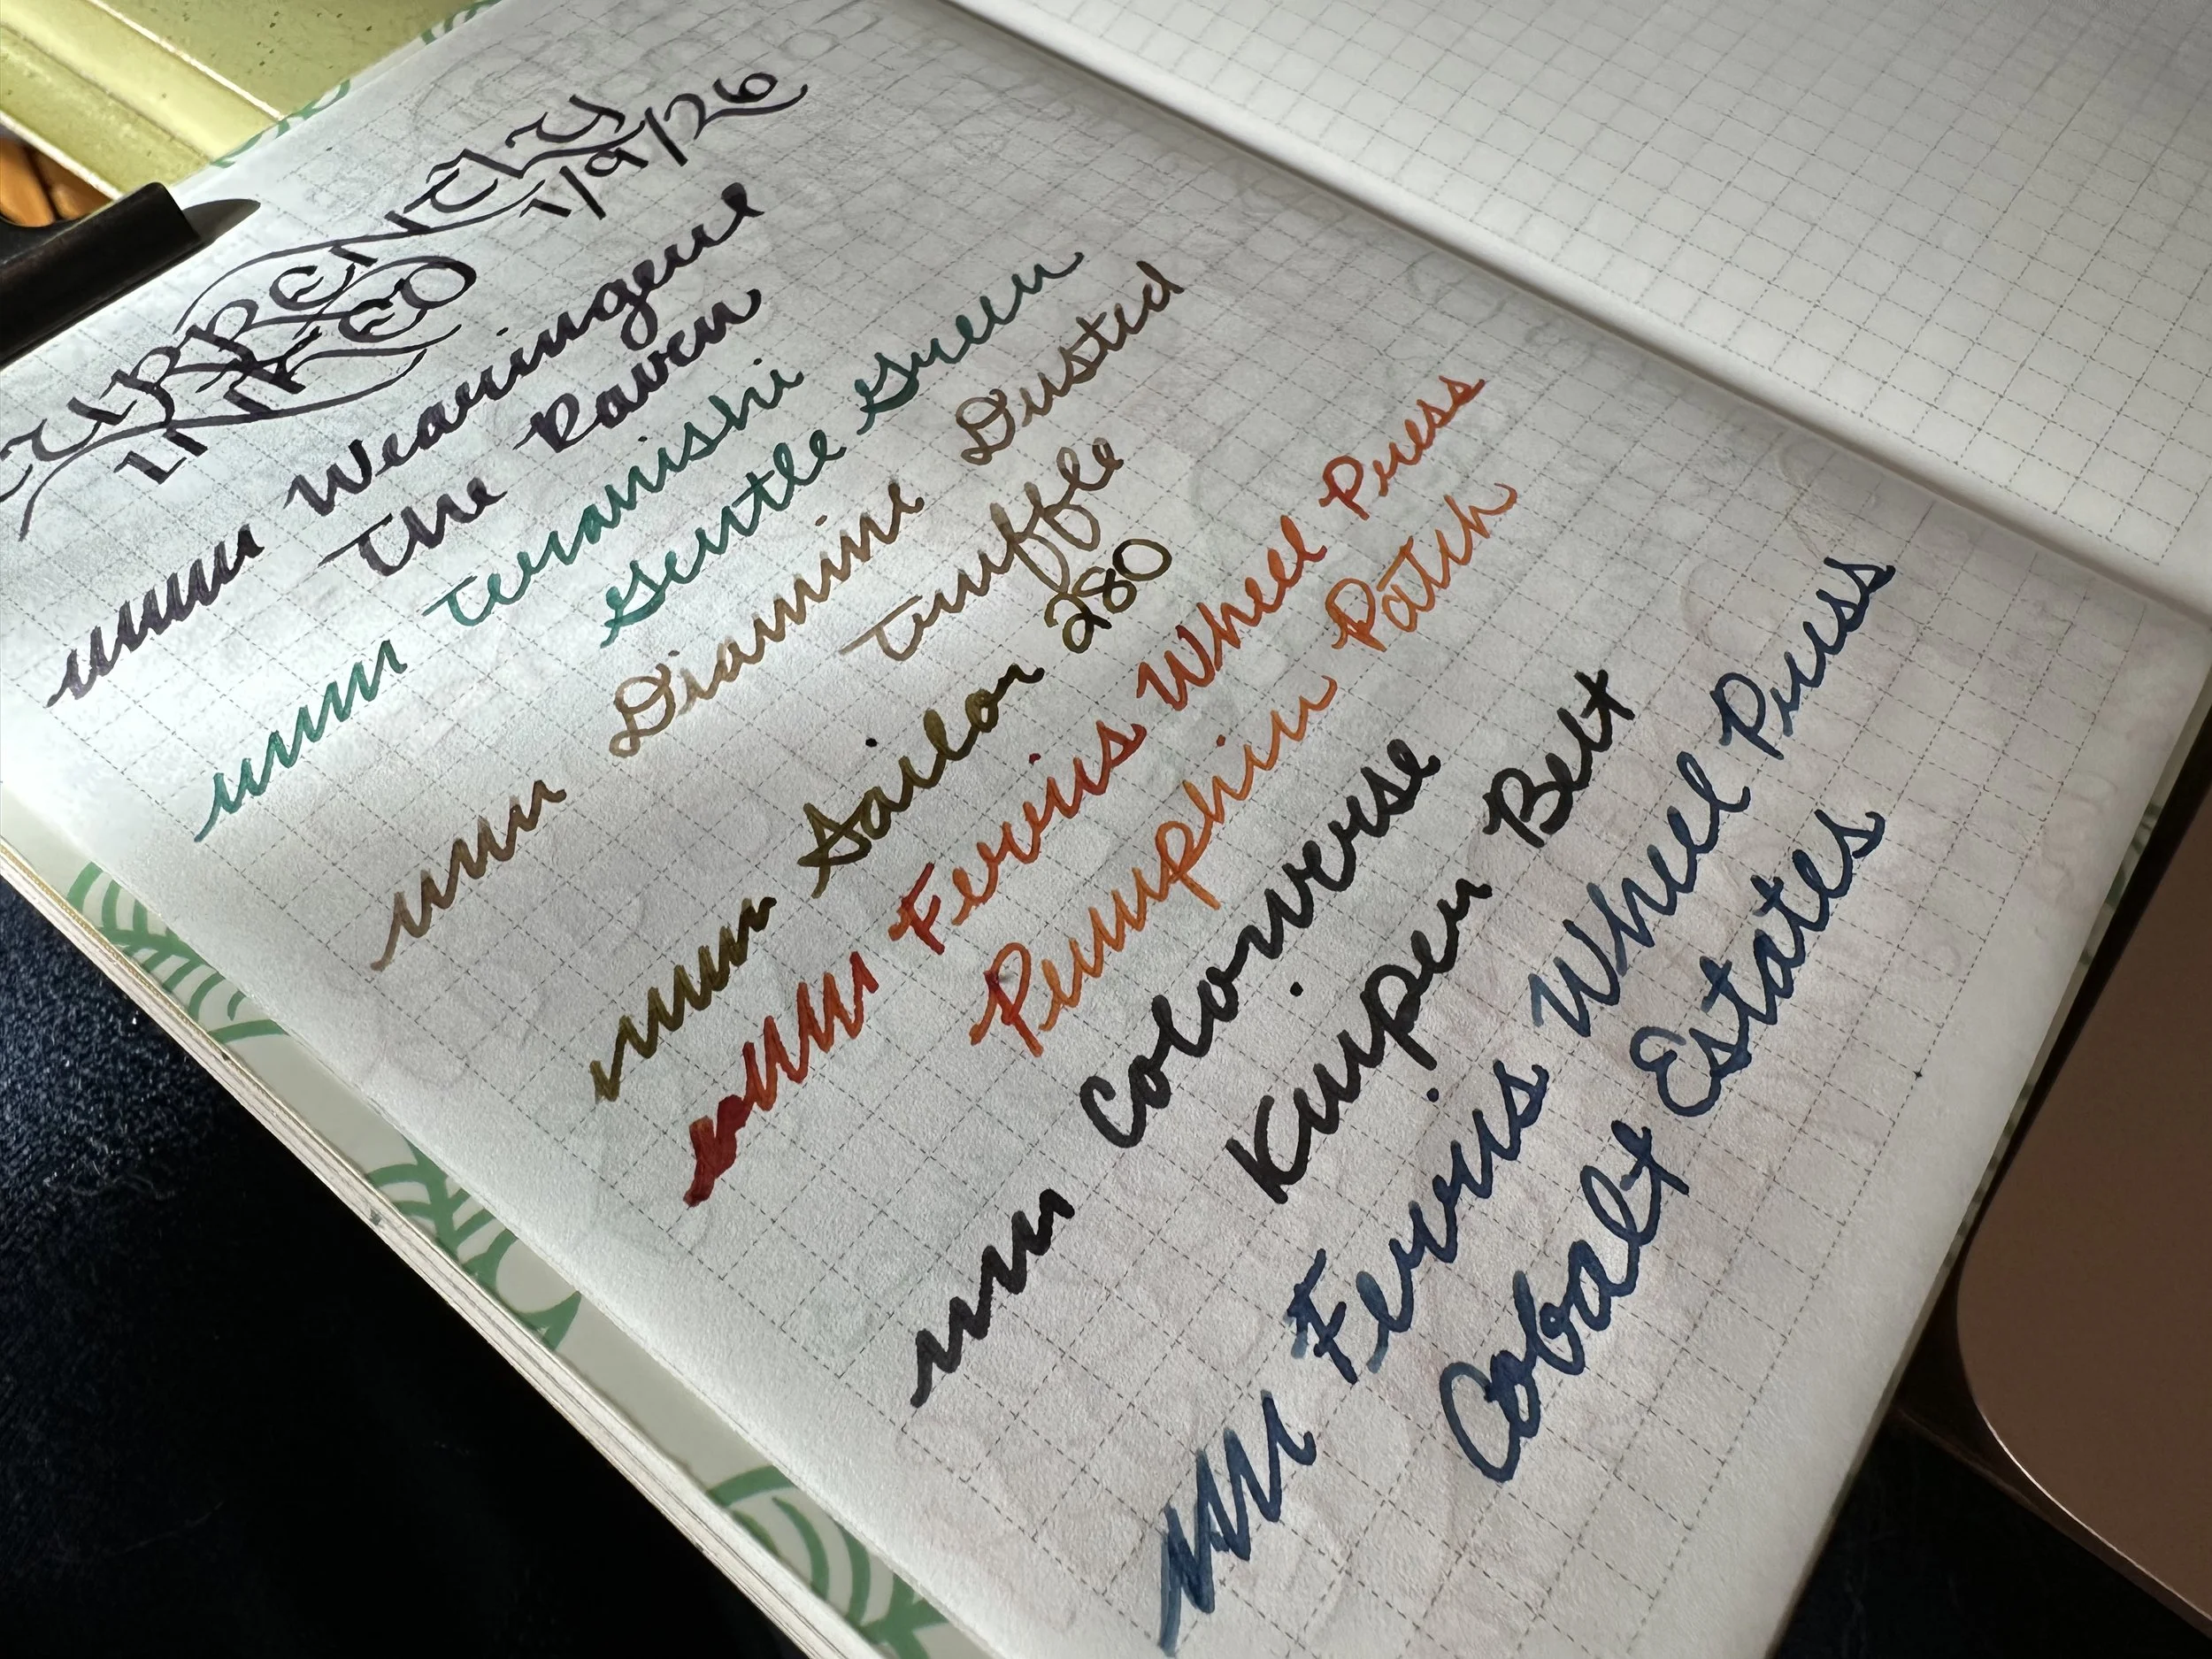 CURRENTLY
INKED
1/9/26
Wearingeul
The Raven
Teranishi
Gentle Green
Diamine Dusted
Truffle
Sailor 280
Ferris Wheel Press
Pumpkin Patch
Colorverse
Kuiper Belt
Ferris Wheel Press
Cobalt Estates